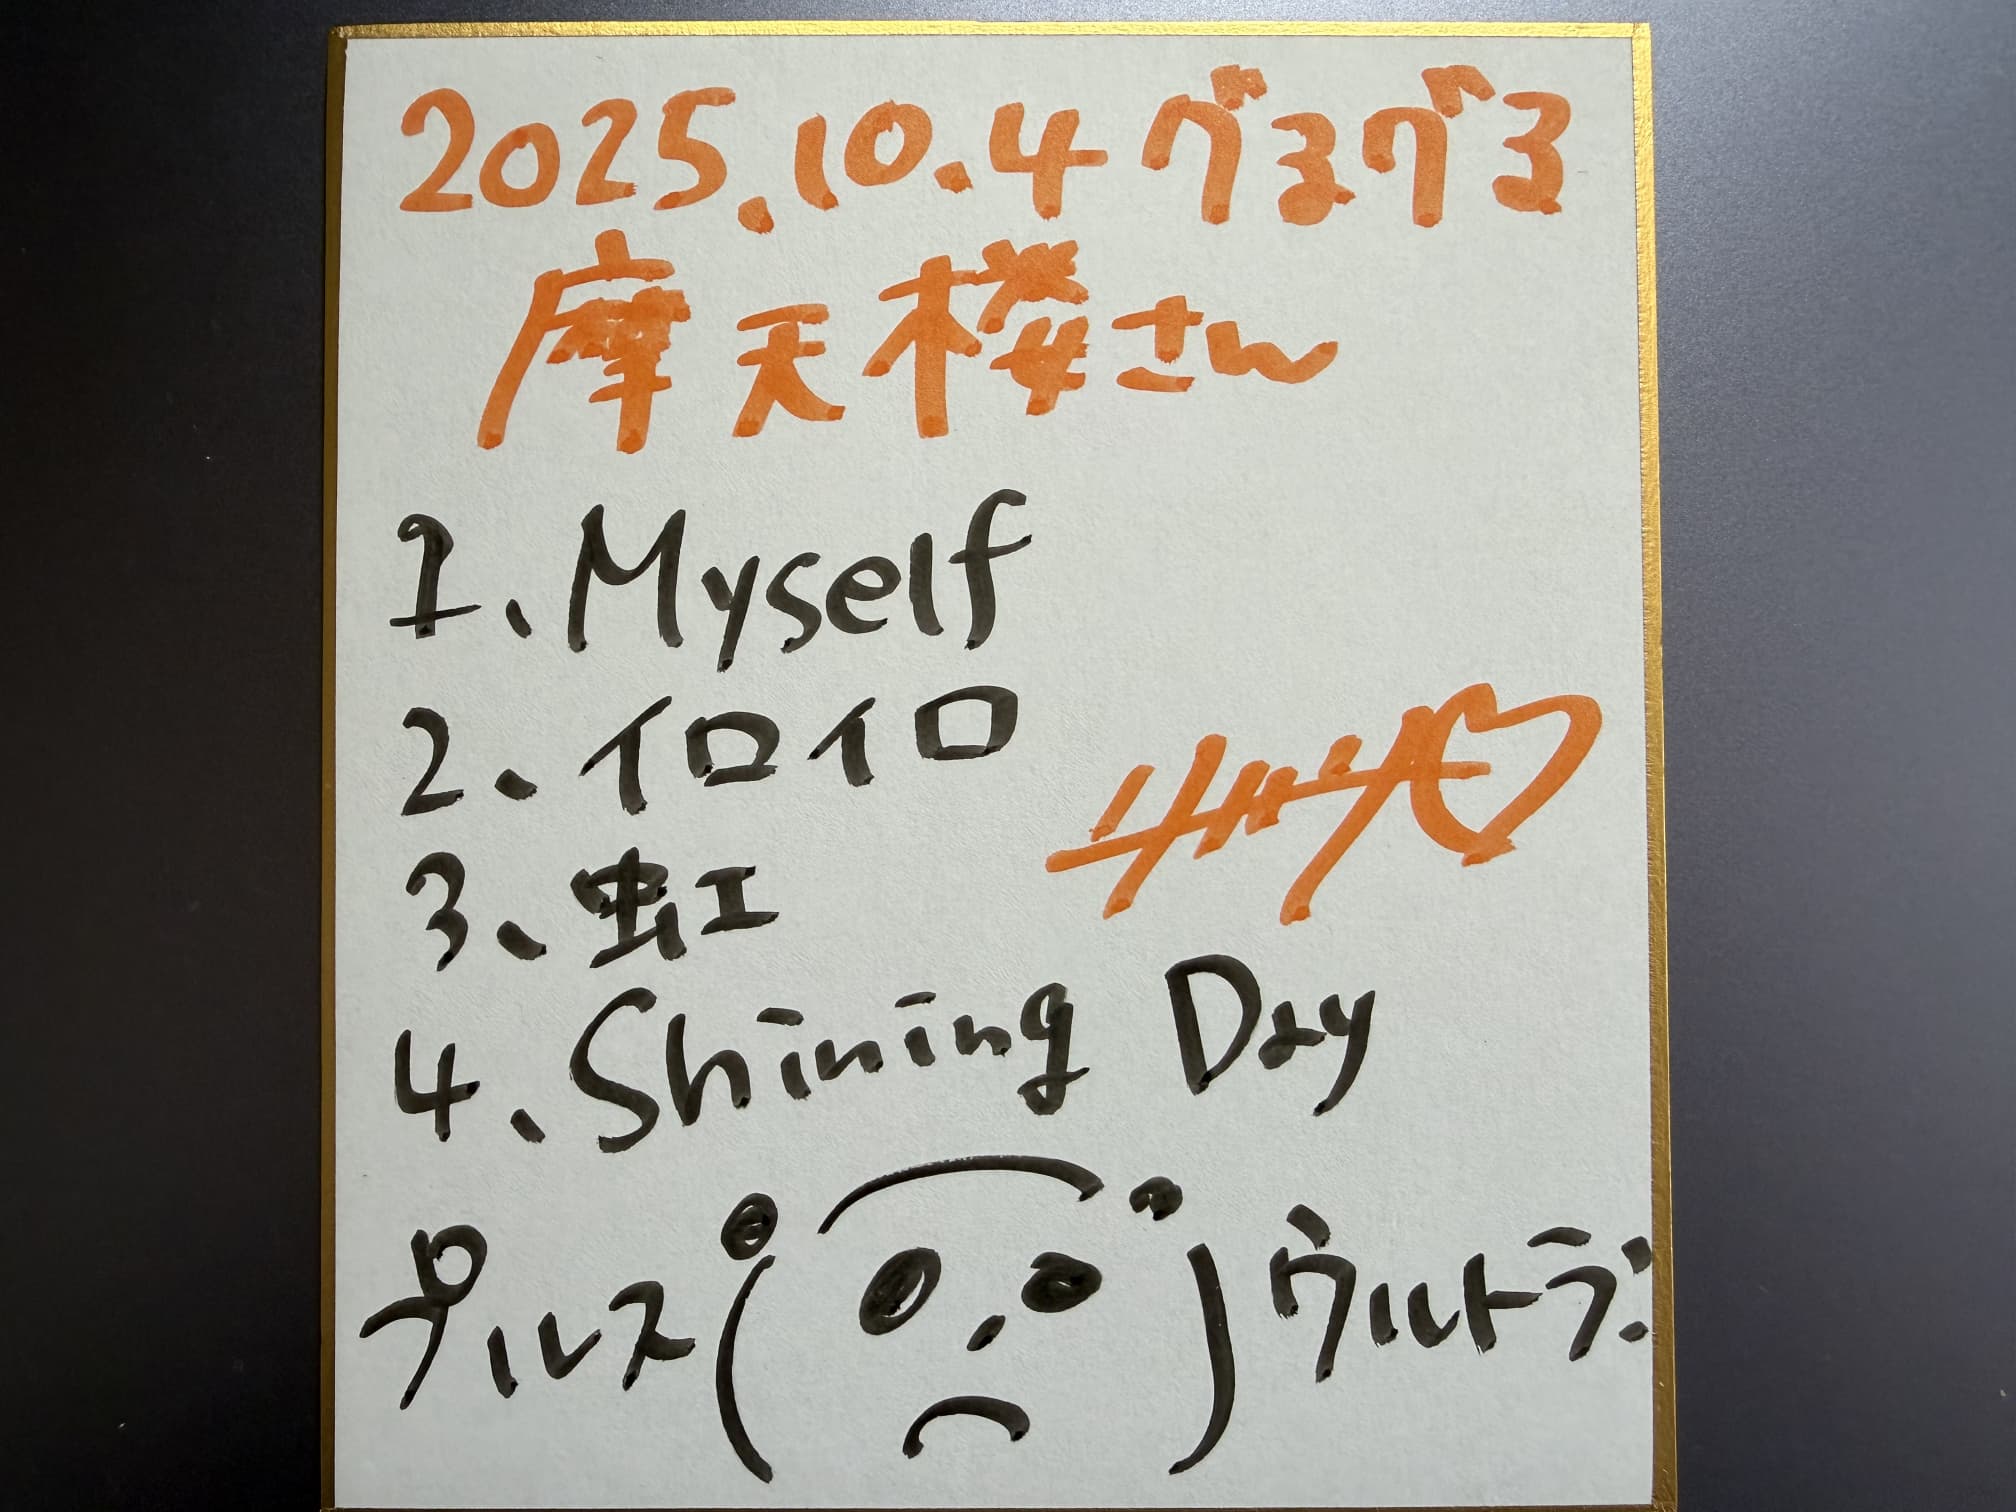 2025.10.4 グるグる
摩天楼さん
1、Myself
2、イロイロ
3、虹
4、Shining Day
プルス ウルトラ: